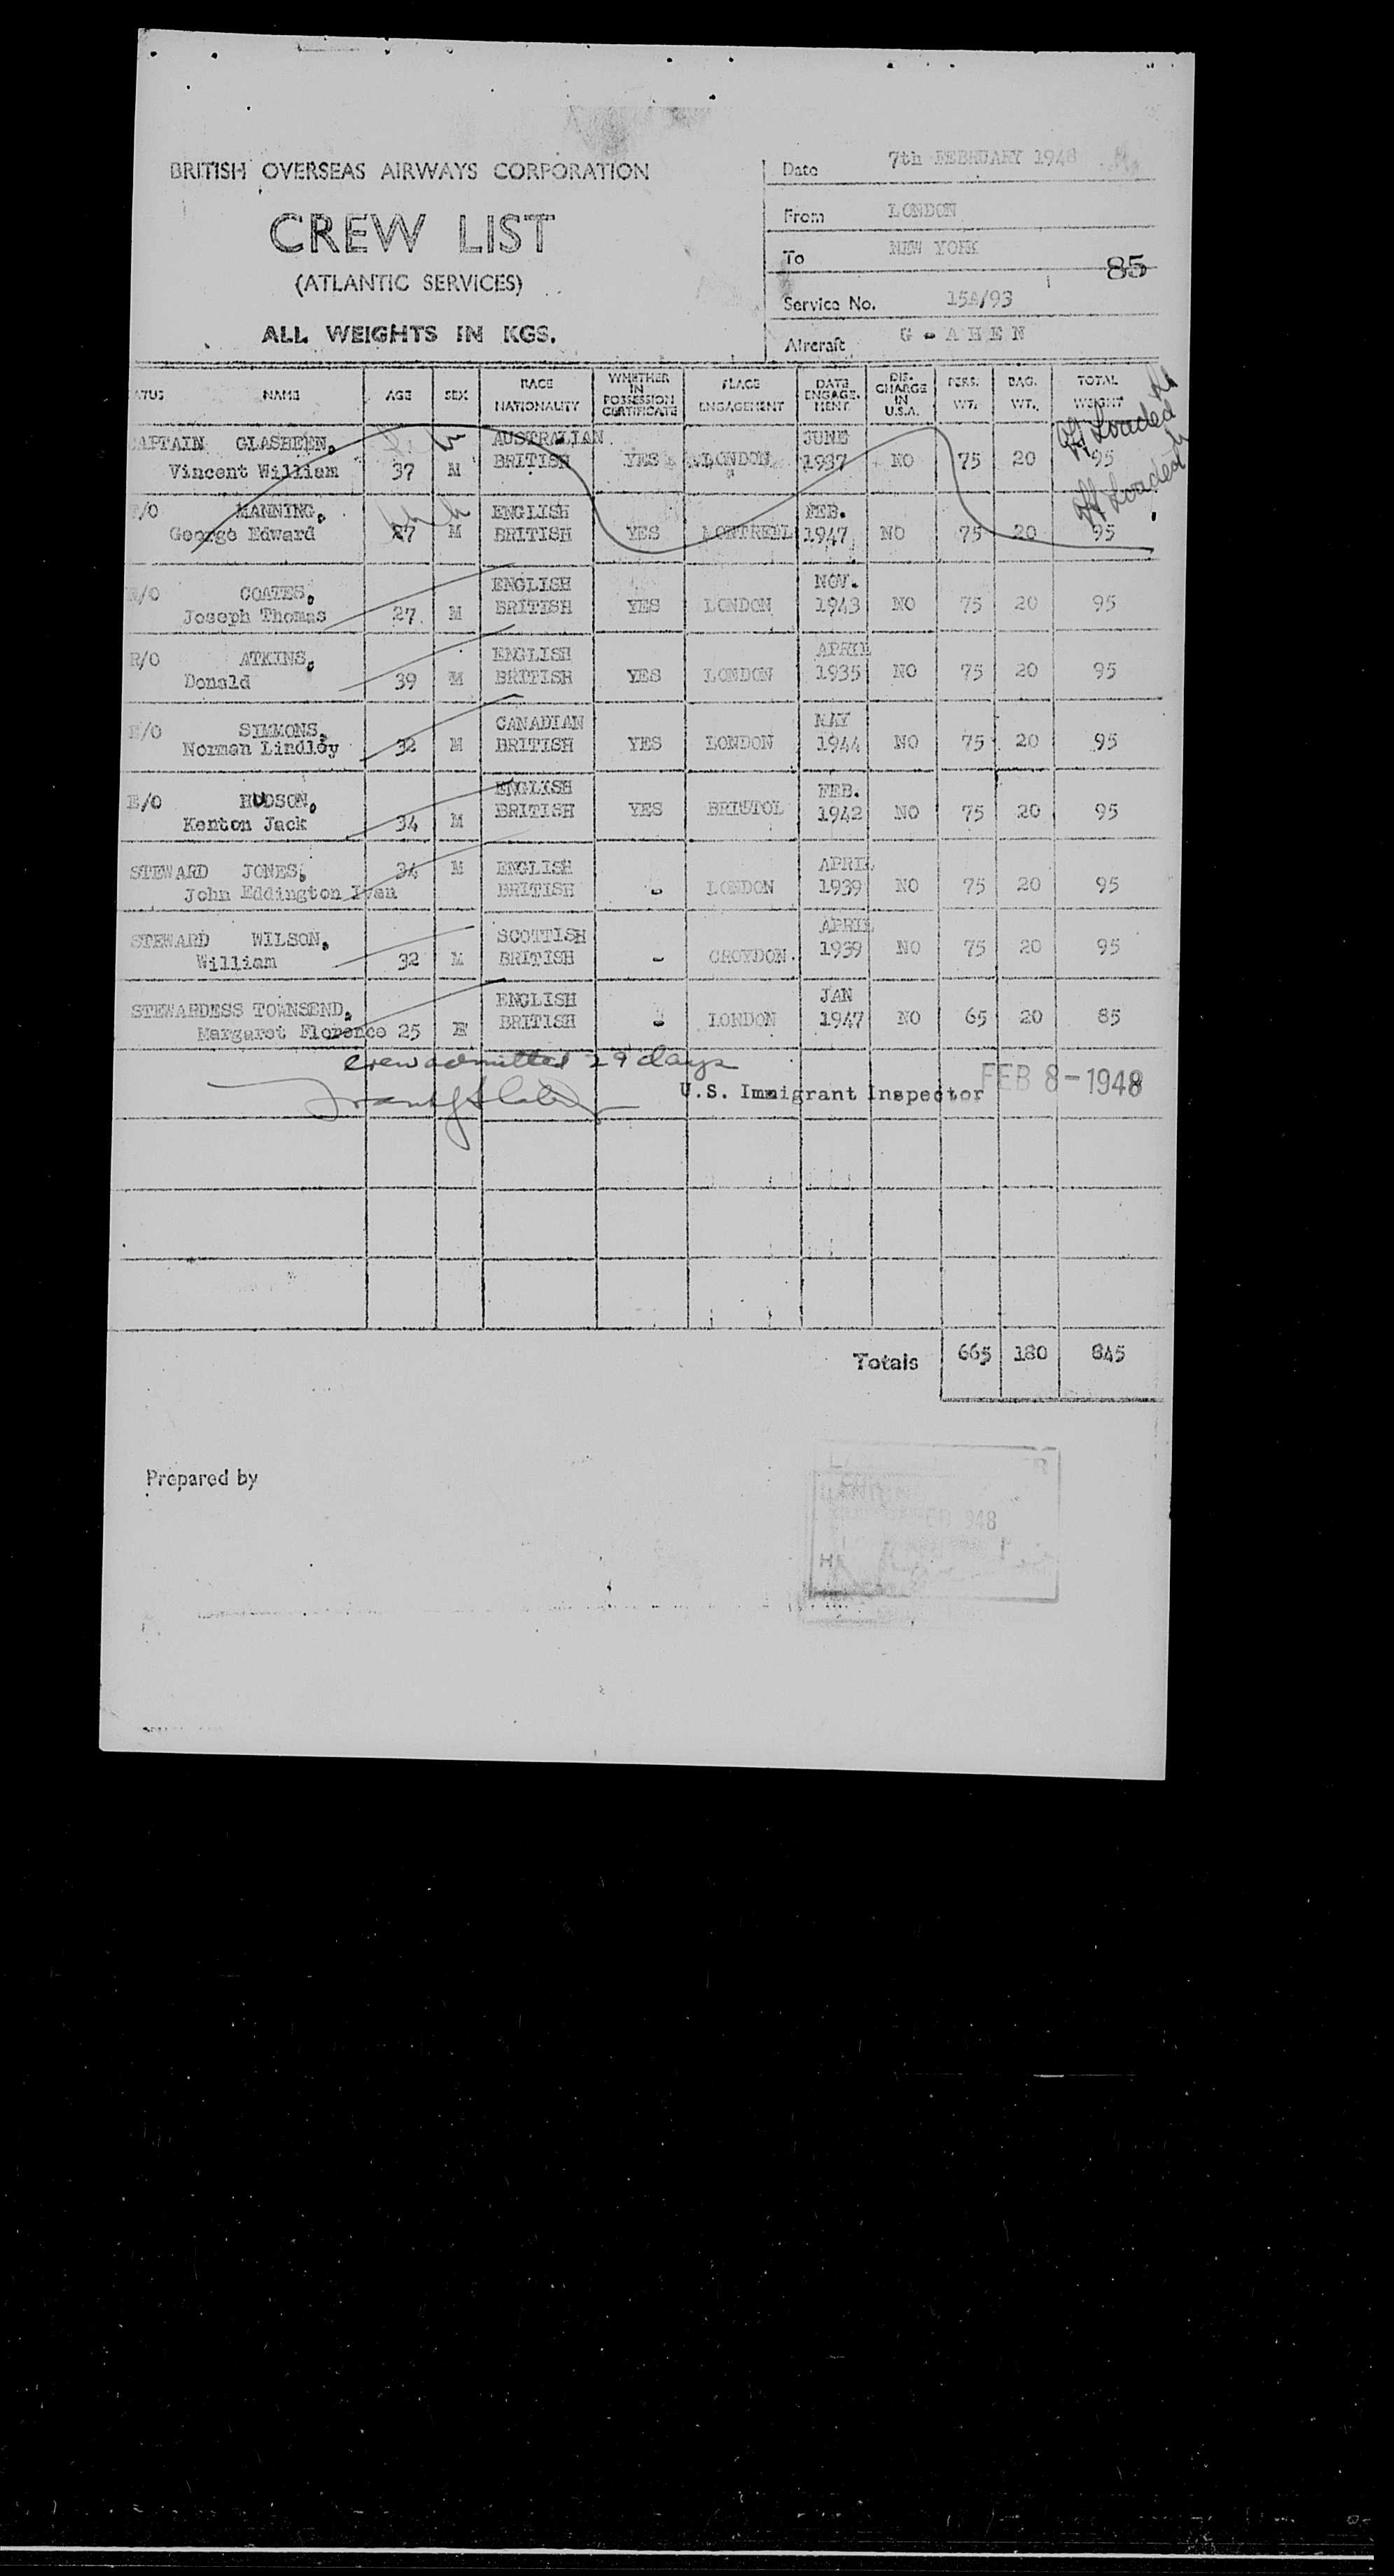 BRITISH OVERSEAS AIRWAYS CORPORATION
CREW LIST
(ATLANTIC SERVICES)
ALL WEIGHTS IN KGS.
Date 7th FEBRUARY 1948
From LONDON
To NEW YORK
85
Service No. 154/93
Aircraft G - A H E N
ATUS NAME AGE SEX RACE NATIONALITY WHETHER IN POSSESSION CERTIFICATE PLACE ENGAGEMENT DATE ENGAGE- MENT DIS- CHARGE IN U.S.A. PERS. WT. BAG. WT. TOTAL WEIGHT
APTAIN GLASHEEN, AUSTRALIAN JUNE Off Loaded
Vincent William 37 M BRITISH YES LONDON 1937 NO 75 20 95
/O MANNING, ENGLISH FEB. Off Loaded
George Edward 27 M BRITISH YES MONTREAL 1947 NO 75 20 95
/O COATES, ENGLISH NOV.
Joseph Thomas 27 M BRITISH YES LONDON 1943 NO 75 20 95
R/O ATKINS, ENGLISH APRIL
Donald 39 M BRITISH YES LONDON 1935 NO 75 20 95
/O SIMMONS, CANADIAN MAY
Norman Lindley 32 M BRITISH YES LONDON 1944 NO 75 20 95
E/O HUDSON, ENGLISH FEB.
Kenton Jack 34 M BRITISH YES BRISTOL 1942 NO 75 20 95
STEWARD JONES, 34 M ENGLISH APRIL
John Eddington Ivan BRITISH - LONDON 1939 NO 75 20 95
STEWARD WILSON, SCOTTISH APRIL
William 32 M BRITISH - CROYDON. 1939 NO 75 20 95
STEWARDESS TOWNSEND, ENGLISH JAN
Margaret Florence 25 F BRITISH - LONDON 1947 NO 65 20 85
Crew admitted 29 days
U.S. Immigrant Inspector FEB 8-1948
Totals 665 180 845
Prepared by